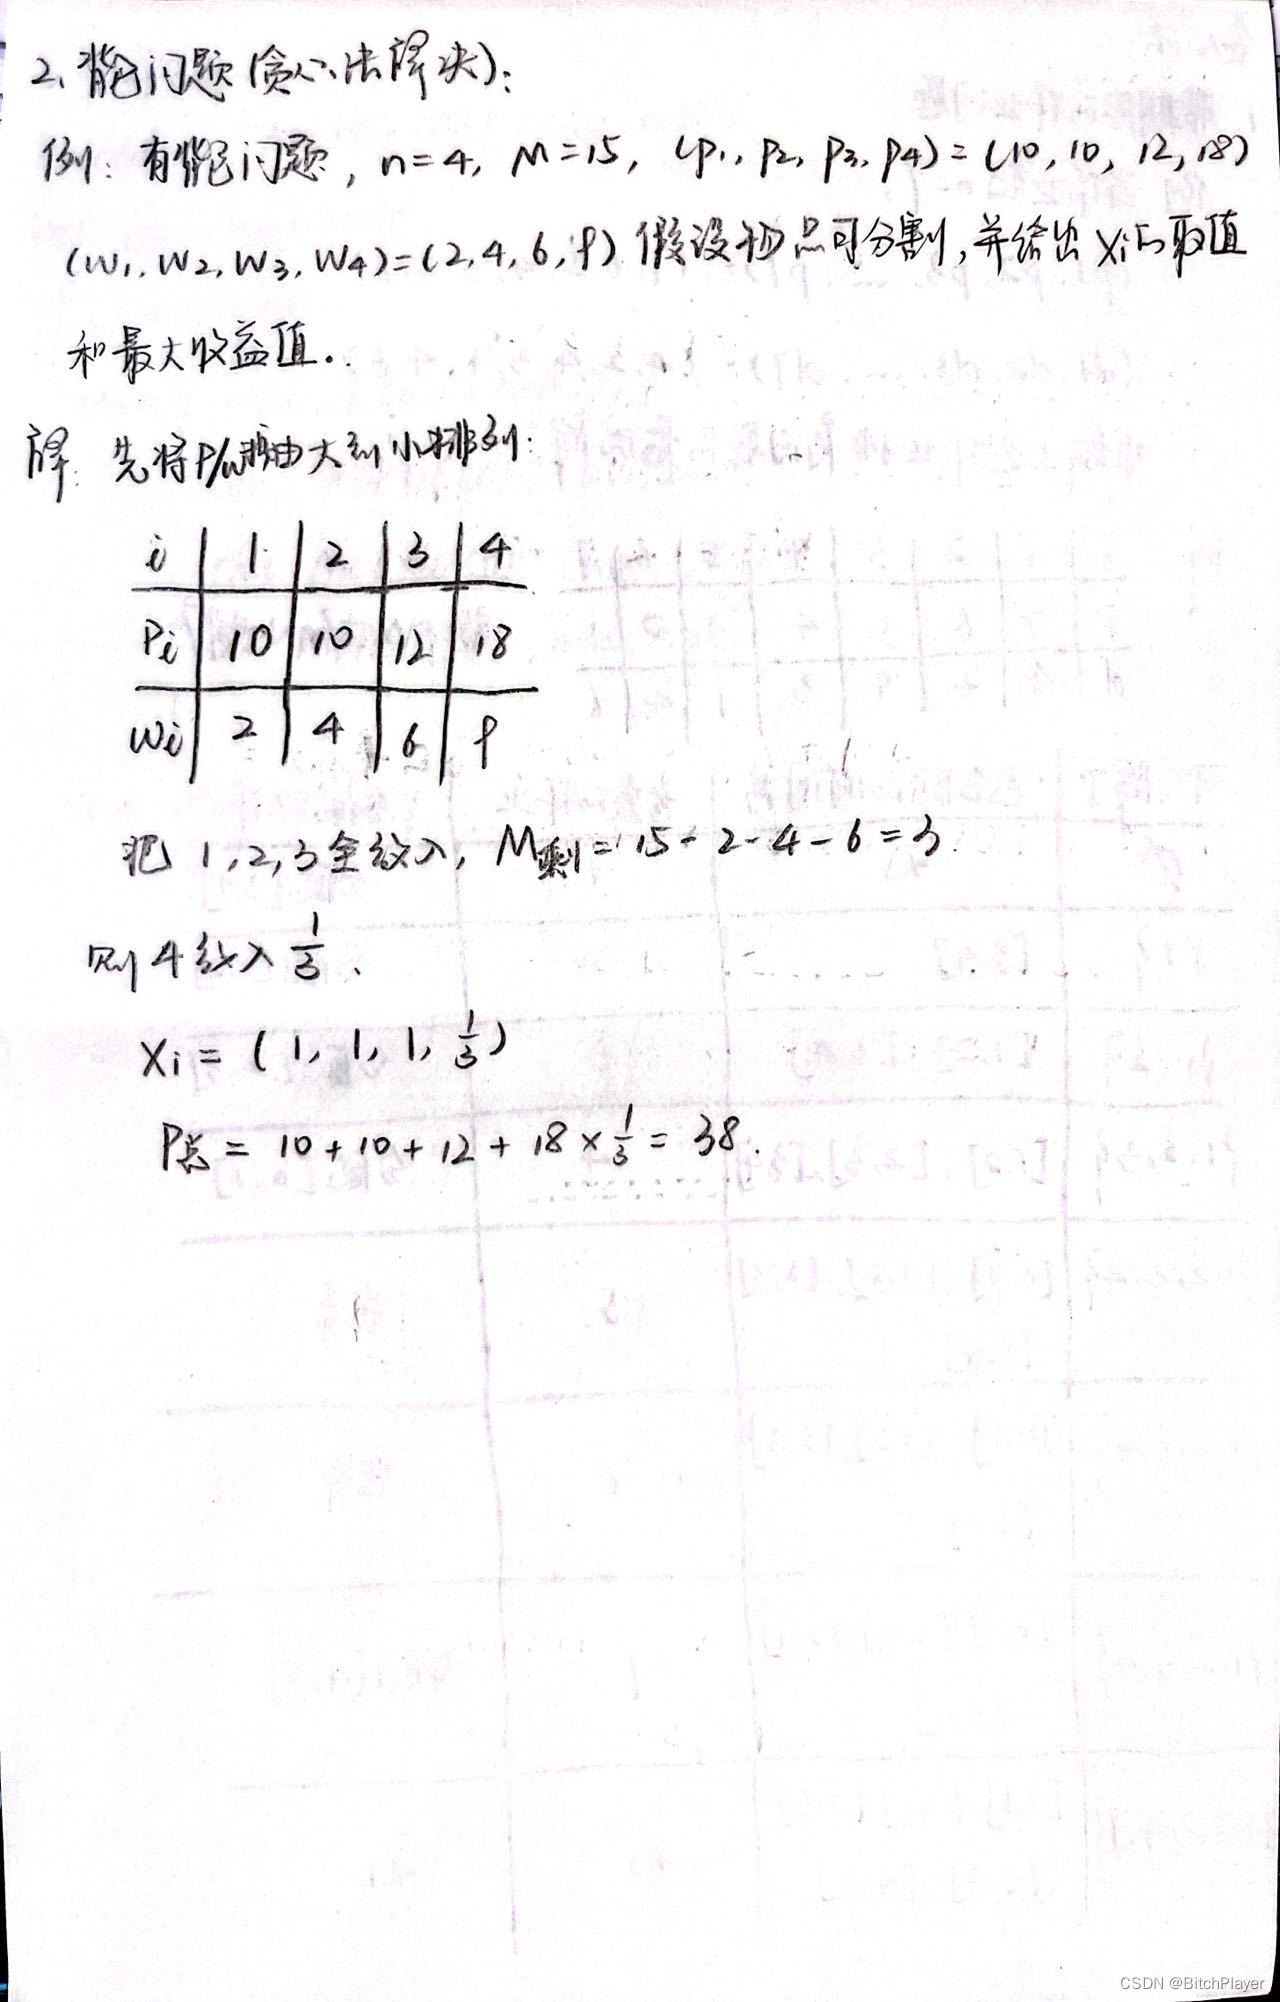 2、背包问题(贪心法解决):
例:有背包问题, n=4, M=15, (p1, p2, p3, p4)=(10, 10, 12, 18)
(w1, w2, w3, w4)=(2, 4, 6, 9) 假设物品可分割,并给出 Xi的取值
和最大收益值.
解: 先将P/W按由大到小排列:
i | 1 | 2 | 3 | 4
Pi | 10 | 10 | 12 | 18
Wi | 2 | 4 | 6 | 9
把 1,2,3全放入, M剩=15-2-4-6=3
则4放入 1/3、
Xi = (1, 1, 1, 1/3)
P总 = 10+10+12+18×1/3=38.
CSDN @BitchPlayer